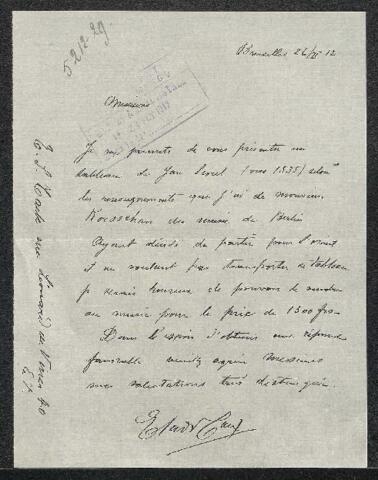 5212.29.
Bruxelles 26/XI 12
Messieurs
Je me permets de vous présenter un
tableau de Jan (vers 1535) selon
les renseignements que j'ai de monsieur
des musées de Berlin
Ayant décidé de partir pour l'orient
et ne voulant pas transporter ce tableau
je serais heureux de pouvoir le vendre
au musée pour le prix de 1500 frs
Dans l'espoir d'obtenir une réponse
favorable veuillez agréer messieurs
mes salutations très distinguées
rue de Vinci 40
E. V.